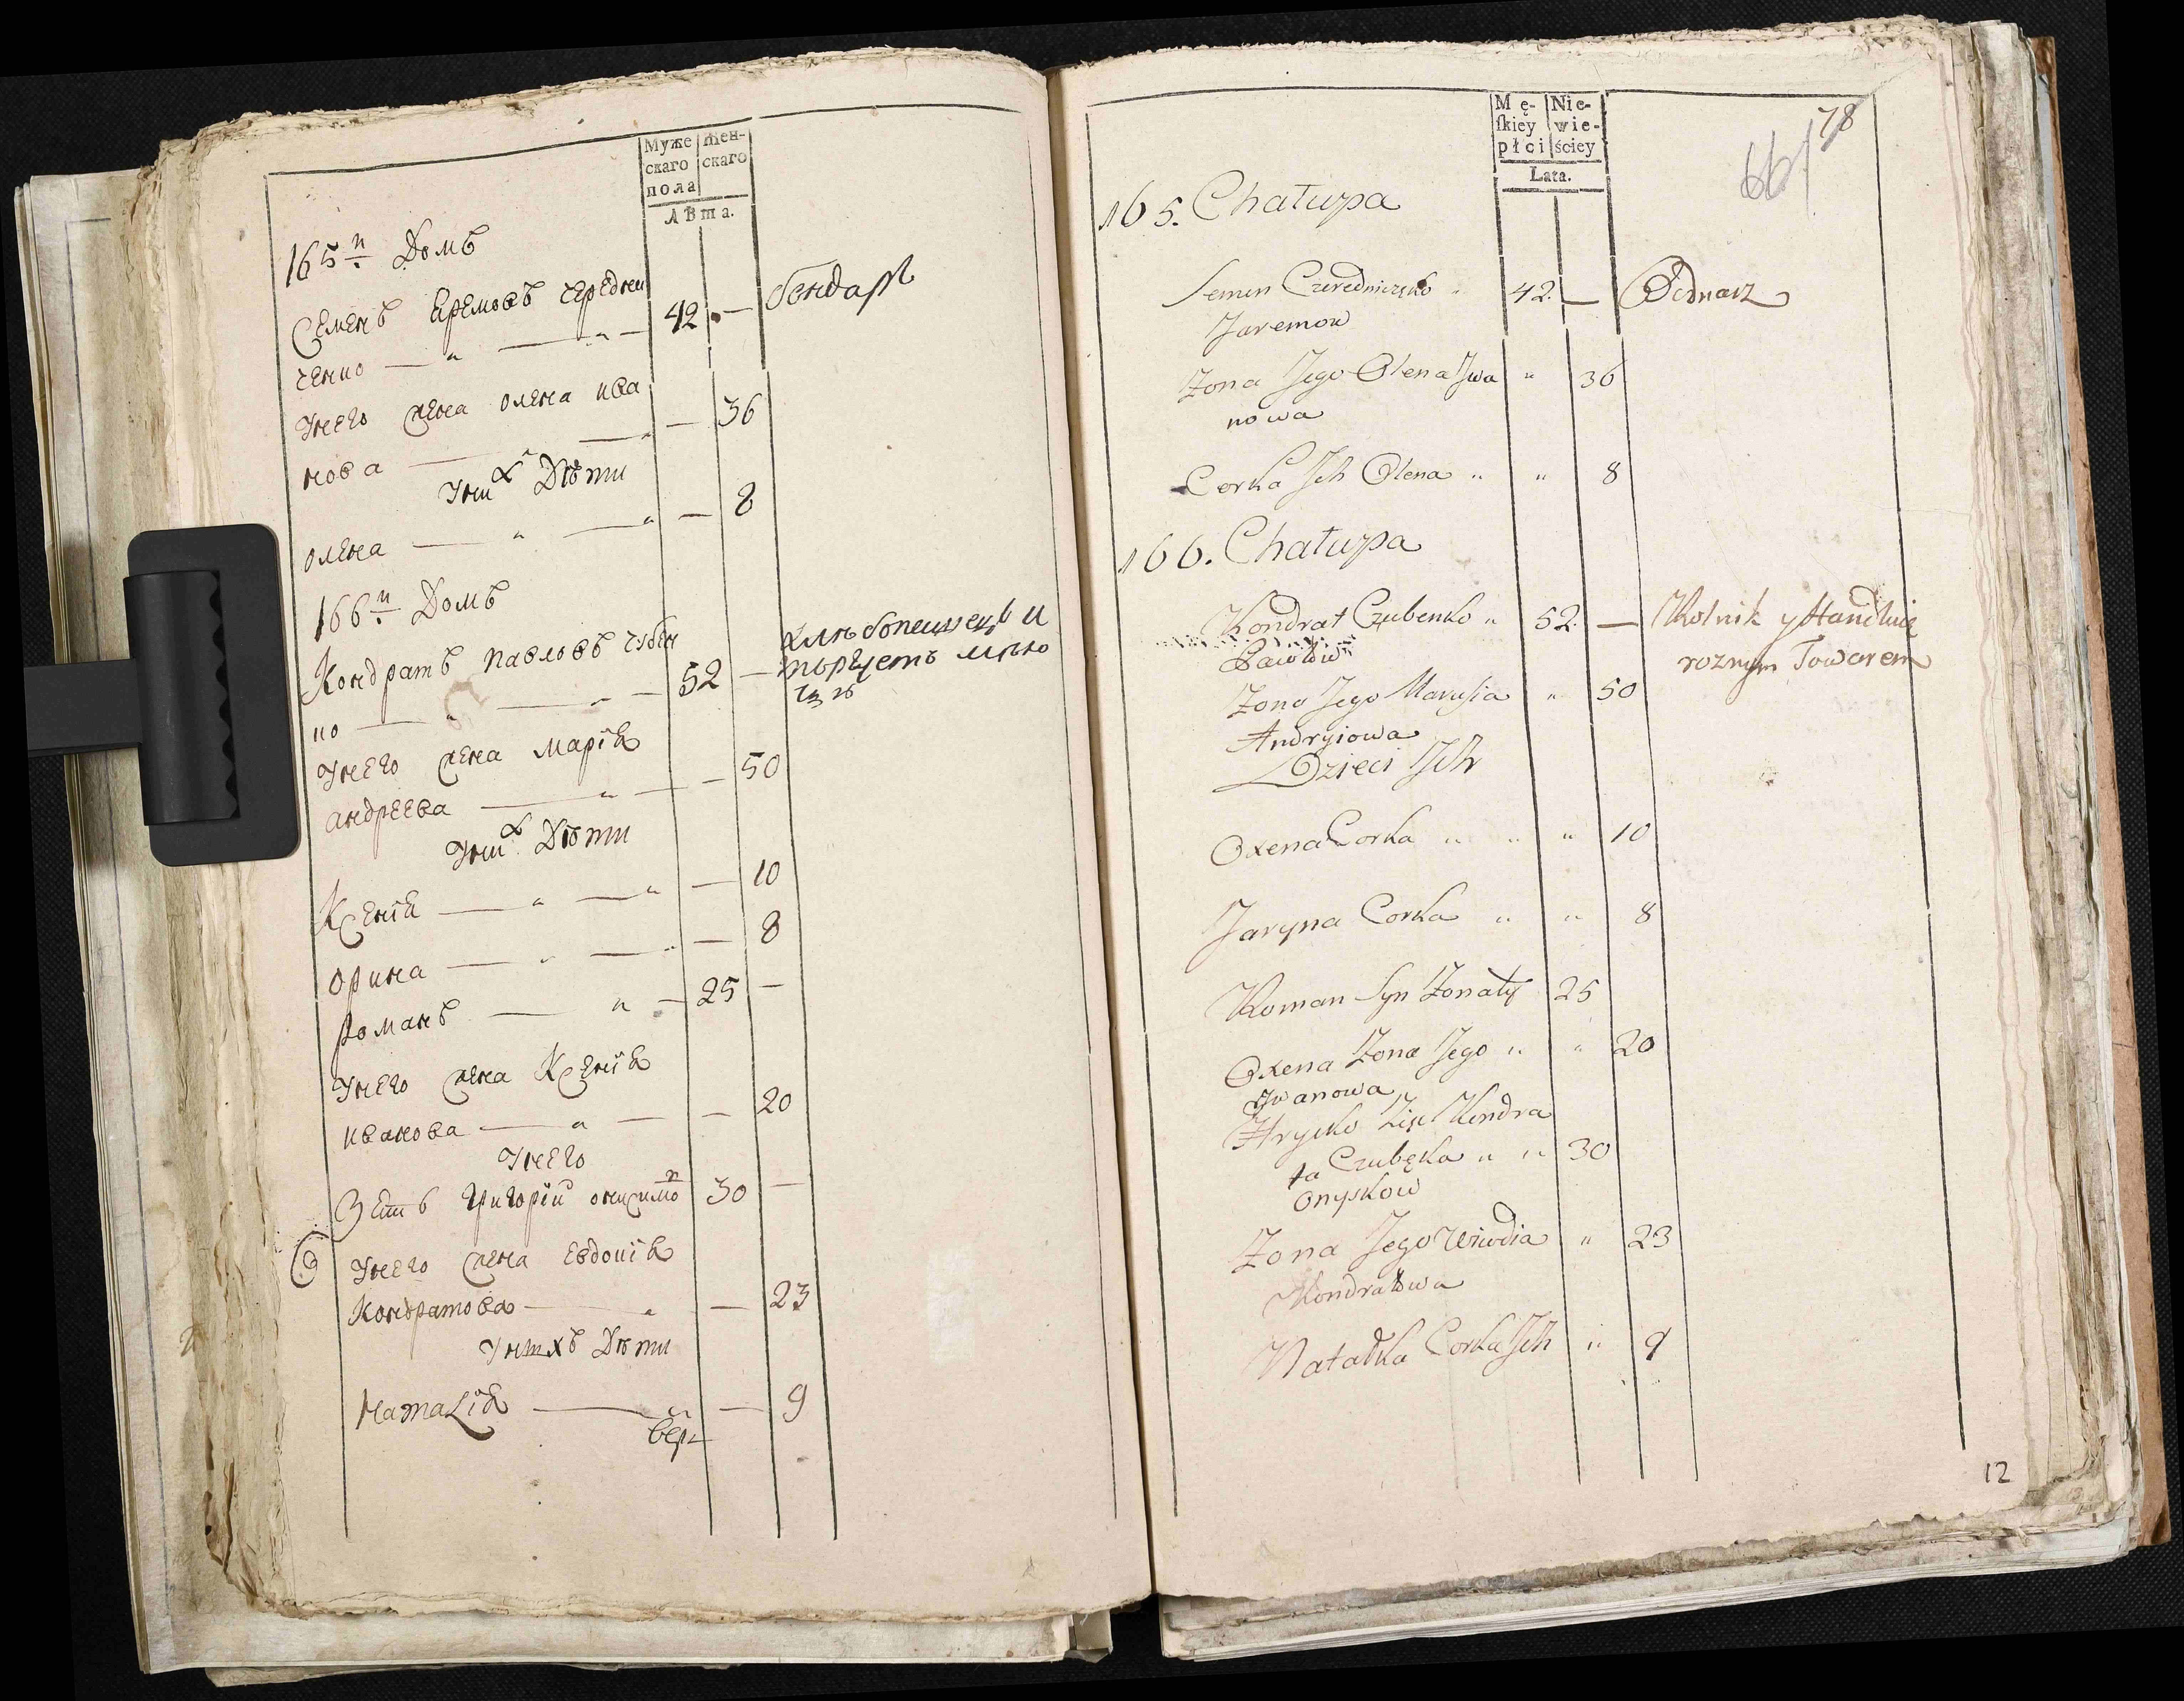 Муже Жен-
скаго скаго
пола
Лѣта.
165й Домъ
Семенъ Еремовъ Чередни
ченко — " — " — 42 — бондаръ
Унего жена олена ива
нова — " — 36
Уних Дѣти
олена — " — " — 8
166й Домъ
Кондратъ павловъ чубен
ко — " — " — 52 — хлѣбопешецъ и
торгуетъ мѣлю
Унего жена Марія
андреева — " — 50
Уних Дѣти
Ксенія — " — " — 10
орина — " — " — 8
романъ — " — 25 —
Унего жена Ксенія
иванова — " — — 20
Унего
Зять григорій онисимо 30 —
Унего жена Евдокія
Кондратова — " — 23
Унихъ Дѣти
Наталія — " — 9
вер
Mę- Nie-
ſkiey wie-
płci ściey
Lata.
78
661
165. Chałupa
Semen Czeredniczęko " 42. — Bednarz
Jaremow
Zona Jego Olena Jwa " 36
nowa
Corka Jch Olena " " 8
166. Chałupa
Kondrat Czubenko " 52. — Rolnik y Handluie
Pawłow roznym Towarem
Zona Jego Marusia " 50
Andryiowa
Dzieci Jch
Oxena Corka " " " 10
Jaryna Corka " " 8
Roman Syn Zonaty 25
Oxena Zona Jego " " 20
Jwanowa
Hrycko Zięć Kondra
ta Czubęka " " 30
Onyskow
Zona Jego Wiwdia " 23
Kondratowa
Natałka Corka Jch " 9
12